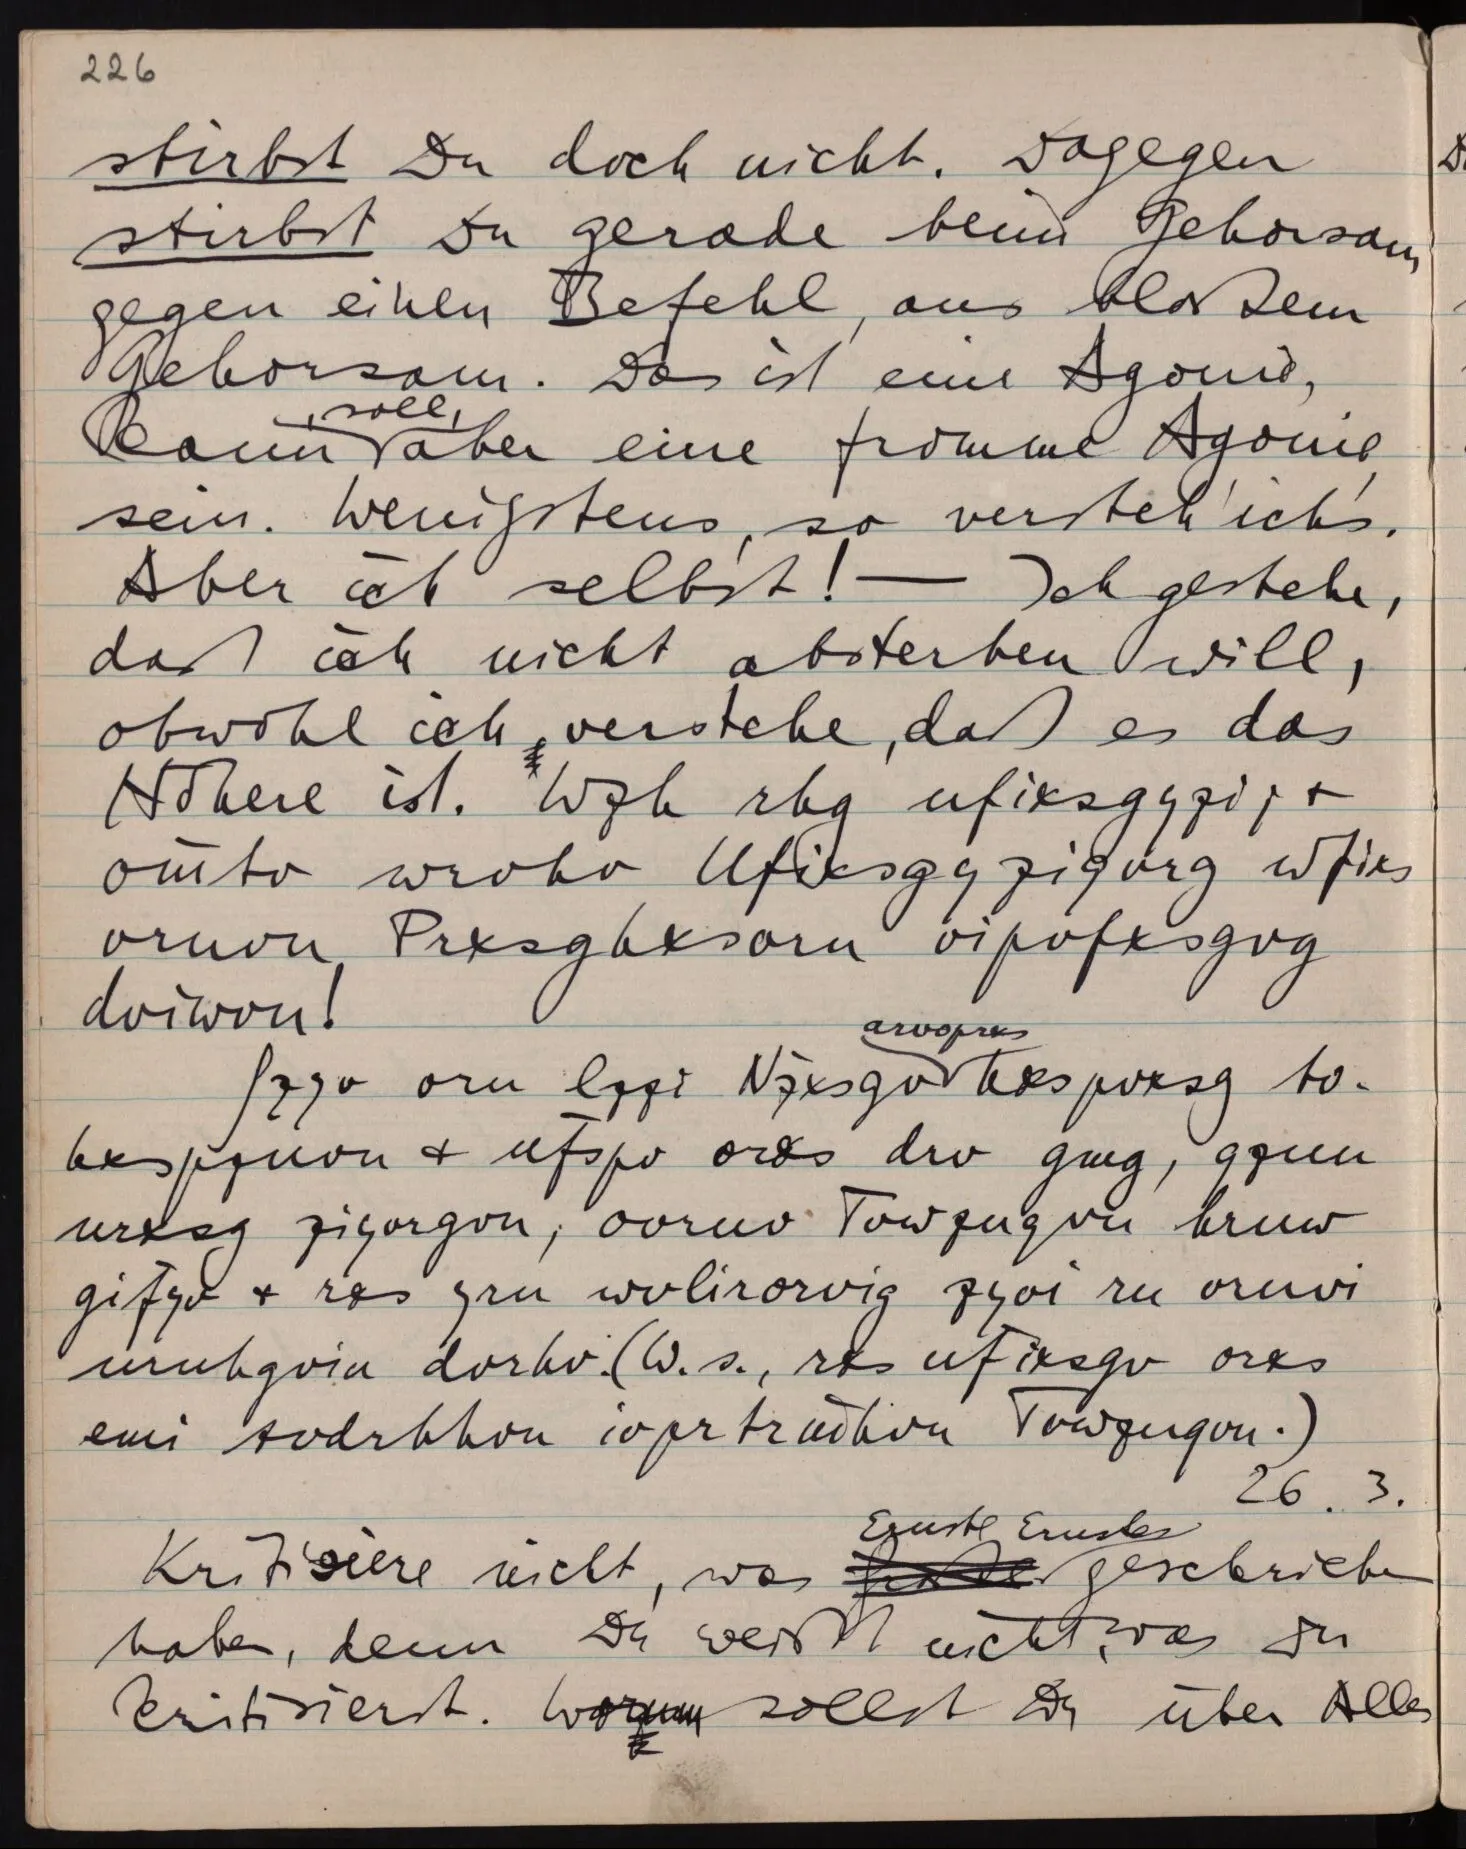 226
stirbst Du doch nicht. Dagegen
stirbst Du gerade beim Gehorsam
gegen einen Befehl, aus bloßem
Gehorsam. Das ist eine Agonie,
kann, soll, aber eine fromme Agonie
sein. Wenigstens, so versteh' ich's.
Aber ich selbst! — Ich gestehe,
daß ich nicht absterben will,
obwohl ich verstehe, daß es das
Höhere ist. Wzh rhg ufixsgyzi; &
nl̈tv wrvhv Ufixsgyziqvrg wfixs
vrmvm Prxsghxsvrm vipvfxsgvg
dviwvm!
Szyv vrm lzzi Nz̈xsgv arvnprxs hxspvxsg tv-
hxspzuvm & uf̈spv nrxs drv glg, qzmm
mrxsg ziyvrgvm; nvrmv Tvwzmqvm hrmw
gif̈yv & rxs yrm wvlirnrvig zyvi rm vrmvi
urmhgvim dvrhv. (W.s., rxs uf̈ixsgv nrxs
eli tvdrhhvm ivprtrl̈hvm Tvwzmqvm.)
26. 3.
Kritisiere nicht, was Ernste Ernstes geschrieben
haben, denn Du weißt nicht, was Du
kritisierst. Warum sollst Du über Alles